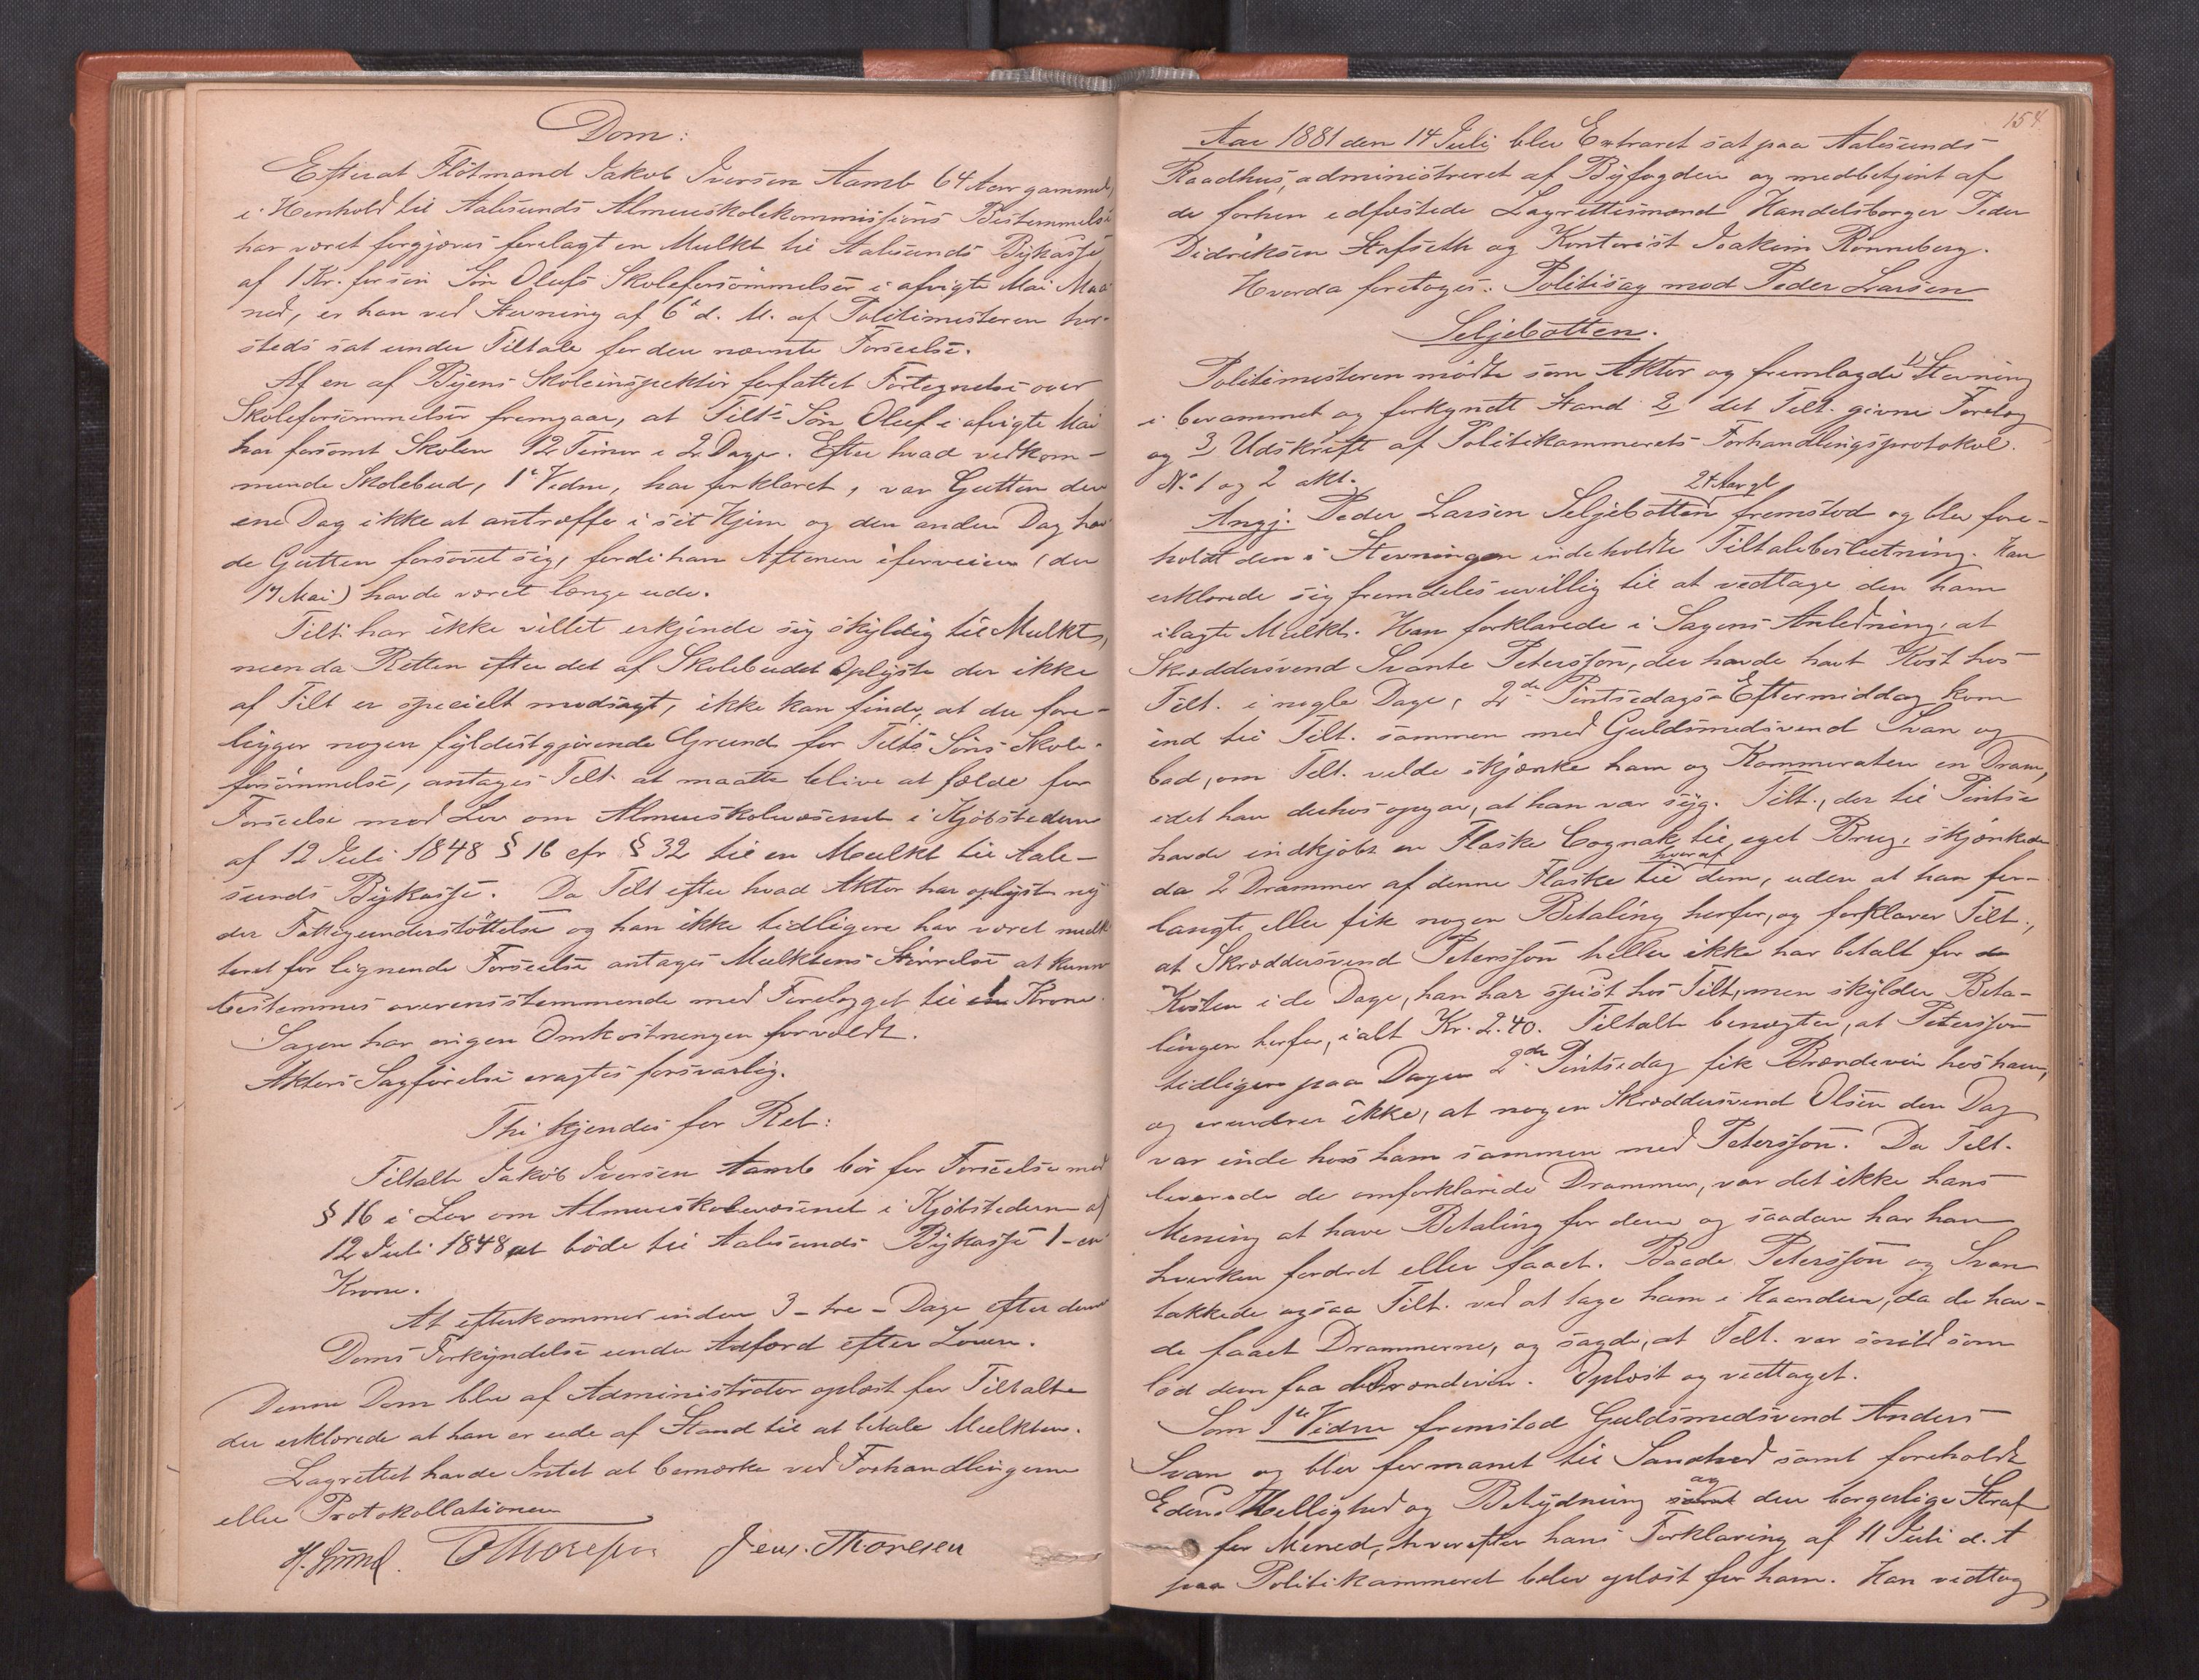 Dom:
Efterat Flötmand Jakob Iversen Aamb 64 Aar gammel,
i Henhold til Aalesunds Almueskolekommissions Bestemmelse
har været forgjæves forelagt en Mulkt til Aalesunds Bykasse
af 1 Kr. for sin Sön Olufs Skoleforsömmelser i afvigte Mai Maa-
ned, er han ved Stevning af 6te d. M. af Politimesteren her-
steds sat under Tiltale for den nævnte Forseelse.
Af en af Byens Skoleinspektör forfattet Fortegnelse over
Skoleforsömmelser fremgaar, at Tilts Sön Oluf i afvigte Mai
har forsömt Skolen 12 Timer i 2 Dage. Efter hvad vedkom-
mende Skolebud, 1e Vidne, har forklaret, var Gutten den
ene Dag ikke at antræffe i sit Hjem og den anden Dag hav-
de Gutten forsovet sig, fordi han Aftenen iforveien (den
17 Mai) havde været længe ude.
Tilt. har ikke villet erkjende sig skyldig til Mulkt,
men da Retten efter det af Skolebudet Oplyste der ikke
af Tilt er specielt modsagt, ikke kan finde, at der fore-
ligger nogen fyldestgjørende Grund for Tilts Söns Skole-
forsömmelse, antages Tilt. at maatte blive at fælde for
Forseelse mod Lov om Almueskolevæsenet i Kjöbstæderne
af 12 Juli 1848 § 16 cfr § 32 til en Mulkt til Aale-
sunds Bykasse. Da Tilt efter hvad Aktor har oplyst ny-
der Fattigunderstöttelse og han ikke tidligere har været mulk-
teret for lignende Forseelse antages Mulktens Störrelse at kunne
bestemmes overensstemmende med Forelægget til 1 Krone.
Sagen har ingen Omkostninger forvoldt.
Aktors Sagförelse eragtes forsvarlig.
Thi kjendes for Ret:
Tiltalte Jakob Iversen Aamb bör for Forseelse mod
§ 16 i Lov om Almueskolevæsenet i Kjöbstæderne af
12 Juli 1848 at böde til Aalesunds Bykasse 1 - en
Krone.
At efterkommes inden 3 - tre - Dage efter denne
Doms Forkyndelse under Adfærd efter Loven.
Denne Dom blev af Administrator oplæst for Tiltalte
der erklærede at han er ude af Stand til at betale Mulkten.
Lagrettet havde Intet at bemærke ved Forhandlingerne
eller Protokollationen
Jens. Thoresen
154
Aar 1881 den 14 Juli blev Extraret sat paa Aalesunds
Raadhus, administreret af Byfogden og medbetjent af
de forhen edfæstede Lagrettesmænd Handelsborger Peder
Didriksen Stafseth og Kontorist Joakim Rönneberg.
Hvorda foretoges: Politisag mod Peder Larsen
Seljebotten.
Politimesteren mödte som Aktor og fremlagde 1/ Stevning
i berammet og forkyndt Stand 2 det Tilt. givne Forelæg
og 3 Udskrift af Politikammerets Forhandlingsprotokol.
No 1 og 2 akt.
Angj. Peder Larsen Seljebotten 24 Aar gl fremstod og blev fore-
holdt den i Stevningen indeholdte Tiltalebeslutning. Han
erklærede sig fremdeles uvillig til at vedtage den ham
ilagte Mulkt. Han forklarede i Sagens Anledning, at
Skræddersvend Svante Petersson, der havde havt Kost hos
Tilt. i nogle Dage, 2den Pintsedags Eftermiddag kom
ind til Tilt. sammen med Guldsmedsvend Svan og
bad, om Tilt. vilde skjænke ham og Kammeraten en Dram,
idet han derhos opgav, at han var syg. Tilt., der til Pintse
havde indkjöbt en Flaske Cognak til eget Brug, skjænkede
da 2 Drammer af denne Flaske til hveraf dem, uden at han for-
langte eller fik nogen Betaling herfor, og forklarer Tilt.,
at Skræddersvend Petersson heller ikke har betalt for
Kosten i de Dage, han har spist hos Tilt, men skylder Beta-
lingen herfor, ialt Kr. 2.40. Tiltalte benægter, at Petersson
tidligere paa Dagen 2den Pintsedag fik Brændevin hos ham,
og erindrer ikke, at nogen Skræddersvend Olsen den Dag
var inde hos ham sammen med Petersson. Da Tilt.
leverede de omforklarede Drammer, var det ikke hans
Mening at have Betaling for dem og saadan har han
hverken fordret eller faaet. Baade Petersson og Svan
takkede ogsaa Tilt. ved at tage ham i Haanden, da de hav-
de faaet Drammerne, og sagde, at Tilt. var snild som
lod dem faa Brændevin. Oplæst og vedtaget.
Som 1te Vidne fremstod Guldsmedsvend Anders
Svan og blev formanet til Sandhed samt foreholdt
Edens Hellighed og Betydning og den borgerlige Straf
for Mened, hvorefter hans Forklaring af 11 Juli d. A
paa Politikammeret blev oplæst for ham. Han vedtog